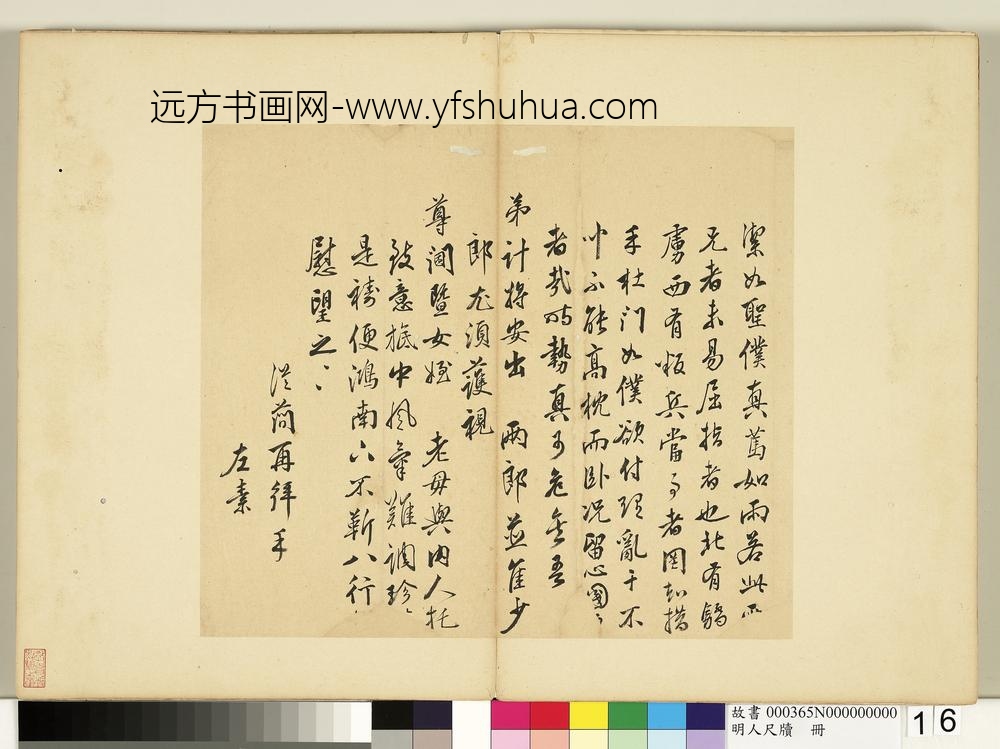 远方书画网-www.yfshuhua.com
潔如聖僕真篤如兩若此而
兄者未易屈指者也北有驕
虜西有叛兵當事者罔知措
手杜門如僕欲付理亂于不
能高枕而卧况留心國〻
者哉時勢真可危吾
弟計將安出 兩郎並隹少
郎尤須護視
尊閫暨女姪 老母與内人托
致意抵中風氣難調珍〻
是禱便鴻南下不靳八行
慰望之〻
再拜手
左素
故書 000365N000000000
明人尺牘 冊
16